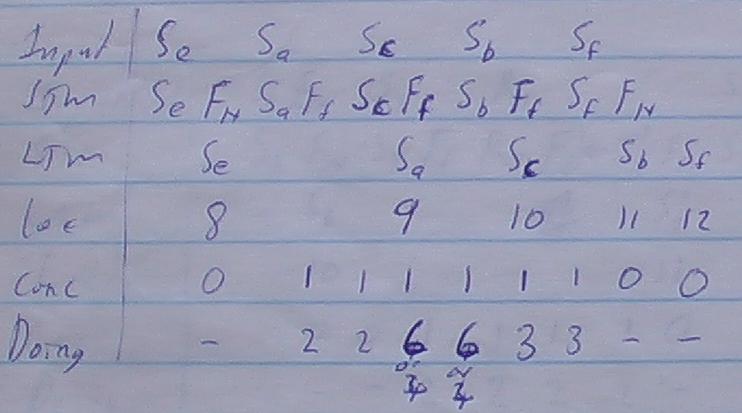 Input Se Sa Sc Sb Sf
STM Se FN Sa Ff Sc Ff Sb Ff Sf FN
LTM Se Sa Sc Sb Sf
loc 8 9 10 11 12
Conc 0 1 1 1 1 1 1 0 0
Doing - 2 2 6 6 3 3 - -
or or